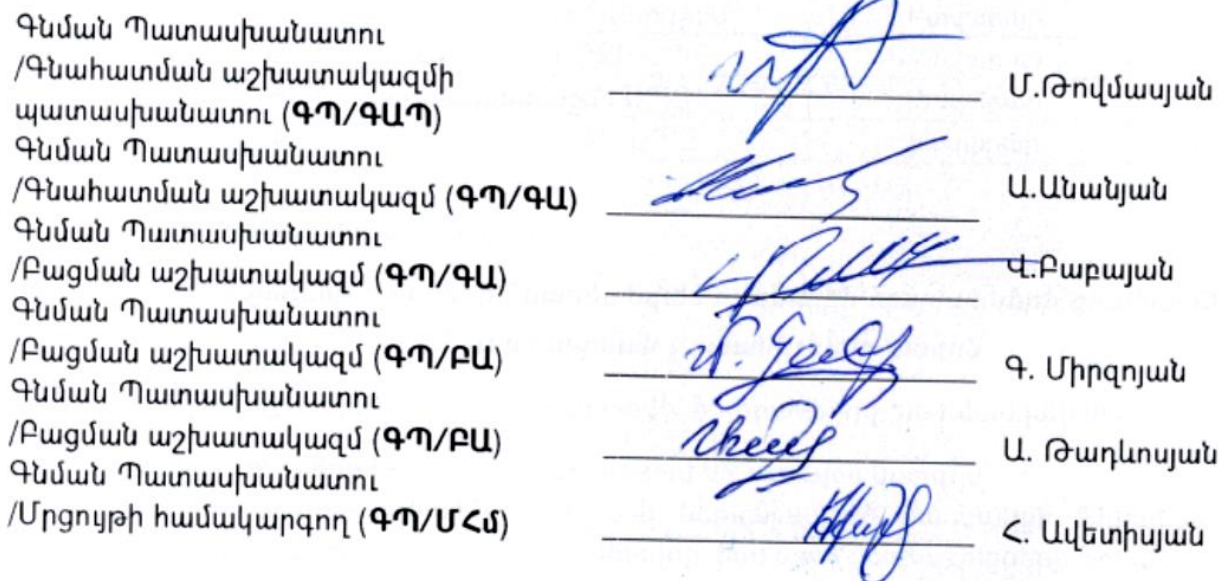 Գնման Պատասխանատու
/Գնահատման աշխատակազմի
պատասխանատու (ԳՊ/ԳԱՊ) Մ.Թովմասյան
Գնման Պատասխանատու
/Գնահատման աշխատակազմ (ԳՊ/ԳԱ) Ա.Անանյան
Գնման Պատասխանատու
/Բացման աշխատակազմ (ԳՊ/ԳԱ) Վ.Բաբայան
Գնման Պատասխանատու
/Բացման աշխատակազմ (ԳՊ/ԲԱ) Գ. Միրզոյան
Գնման Պատասխանատու
/Բացման աշխատակազմ (ԳՊ/ԲԱ) Ա. Թադևոսյան
Գնման Պատասխանատու
/Մրցույթի համակարգող (ԳՊ/ՄՀմ) Հ. Ավետիսյան